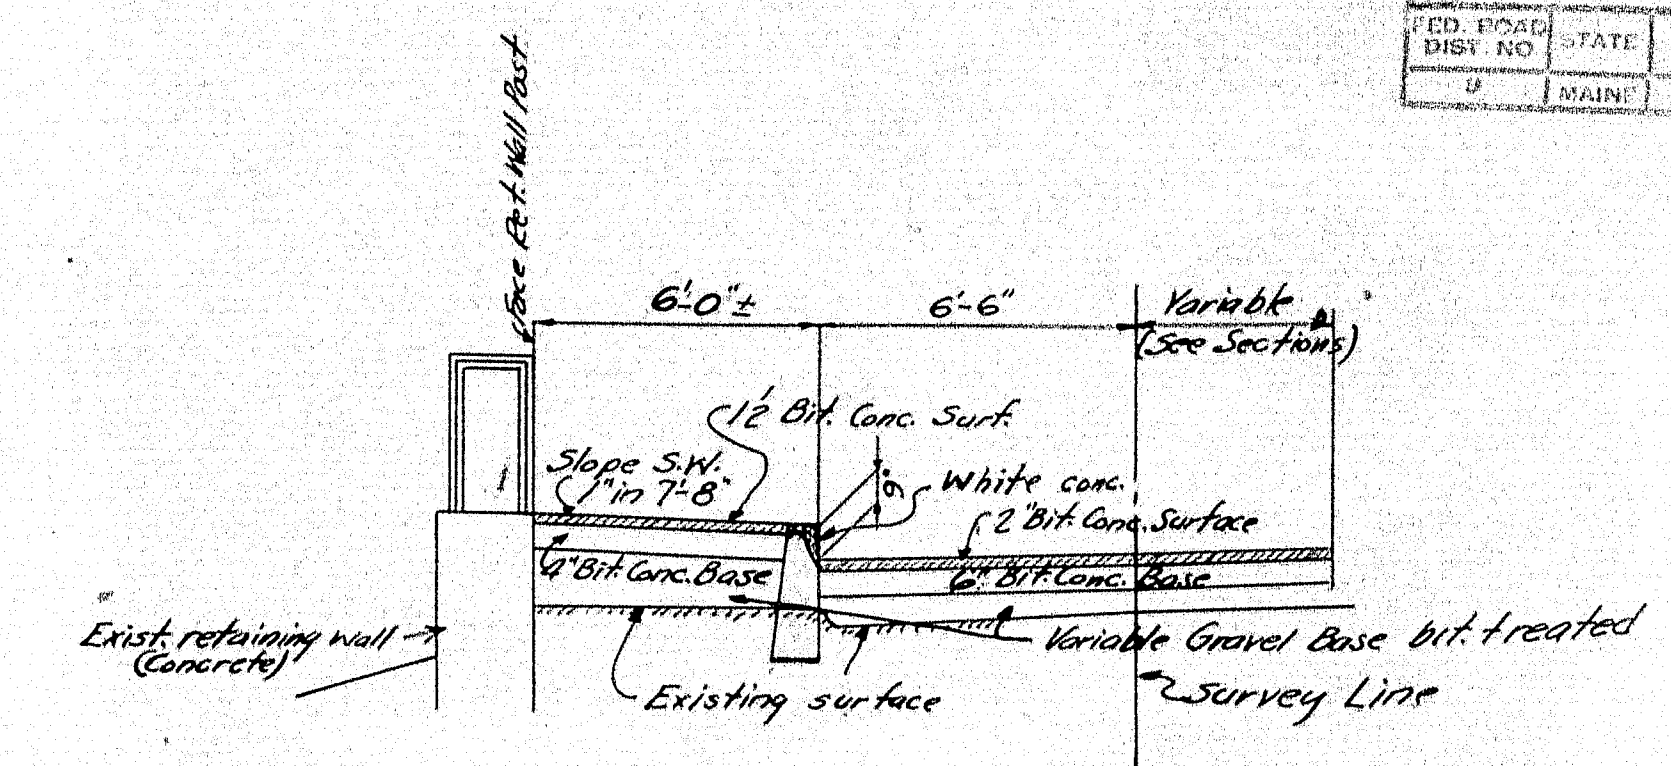 FED. ROAD
DIST. NO
STATE
MAINE
Face Ret. Wall Post
6'-0"±
6'-6"
Variable
(See Sections)
1½ Bit. Conc. Surf.
Slope S.W.
1" in 7'-8"
9"
White conc.
2" Bit. Conc. Surface
4" Bit. Conc. Base
6" Bit. Conc. Base
Exist. retaining wall
(Concrete)
Variable Gravel Base bit. treated
Existing surface
Survey Line